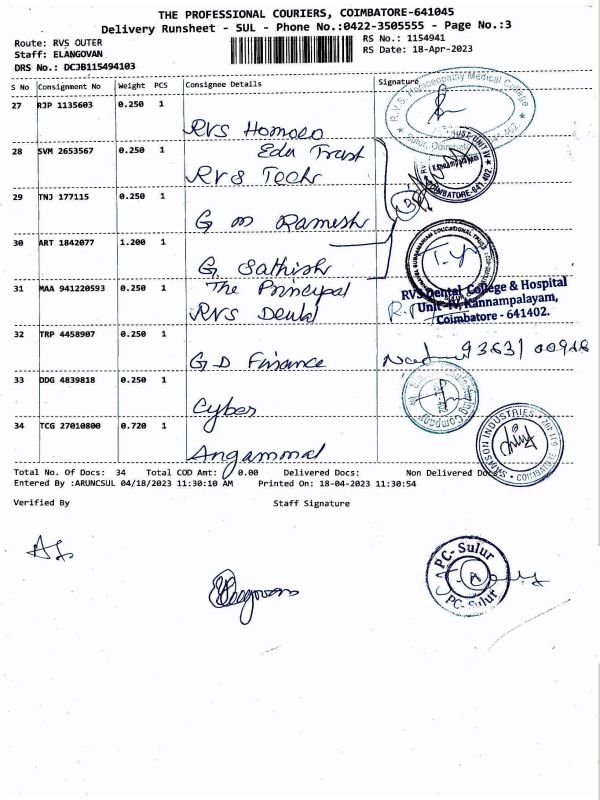 THE PROFESSIONAL COURIERS, COIMBATORE-641045
Delivery Runsheet - SUL - Phone No.:0422-3505555 - Page No.:3
Route: RVS OUTER
RS No.: 1154941
Staff: ELANGOVAN
RS Date: 18-Apr-2023
DRS No.: DCJB115494103
S No Consignment No Weight PCS Consignee Details Signature
27 RJP 1135603 0.250 1
RVS Homoeo
28 SVM 2653567 0.250 1
Edu Trust
RVS Tech
29 TNJ 177115 0.250 1
G M Ramesh
30 ART 1842077 1.200 1
G. Sathish
31 MAA 941220593 0.250 1
The Principal
RVS Dental
32 TRP 4458907 0.250 1
G D Finance
33 DDG 4839818 0.250 1
Cyber
34 TCG 27010800 0.720 1
Angammal
R.V.S. Homoeopathy Medical College
Sulur, Coimbatore 402.
COIMBATORE-641 402.
RVS Dental College & Hospital
Unit-IV, Kannampalayam,
Coimbatore - 641402.
SAMSON INDUSTRIES
COIMBATORE
Total No. Of Docs: 34 Total COD Amt: 0.00 Delivered Docs: Non Delivered Docs:
Entered By :ARUNCSUL 04/18/2023 11:30:10 AM Printed On: 18-04-2023 11:30:54
Verified By Staff Signature
PC- Sulur
PC- Sulur